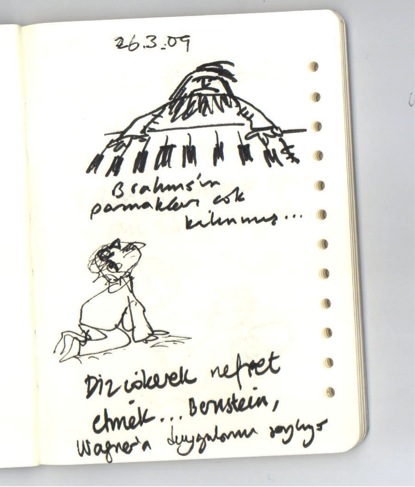 26.3.09
Brahms'ın
parmakları çok
kalınmış...
Diz çökerek nefret
etmek... Bernstein,
Wagner'a duygularını